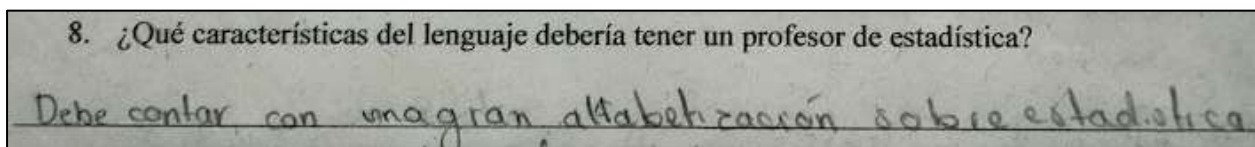 8. ¿Qué características del lenguaje debería tener un profesor de estadística?
Debe contar con una gran alfabetización sobre estadistica